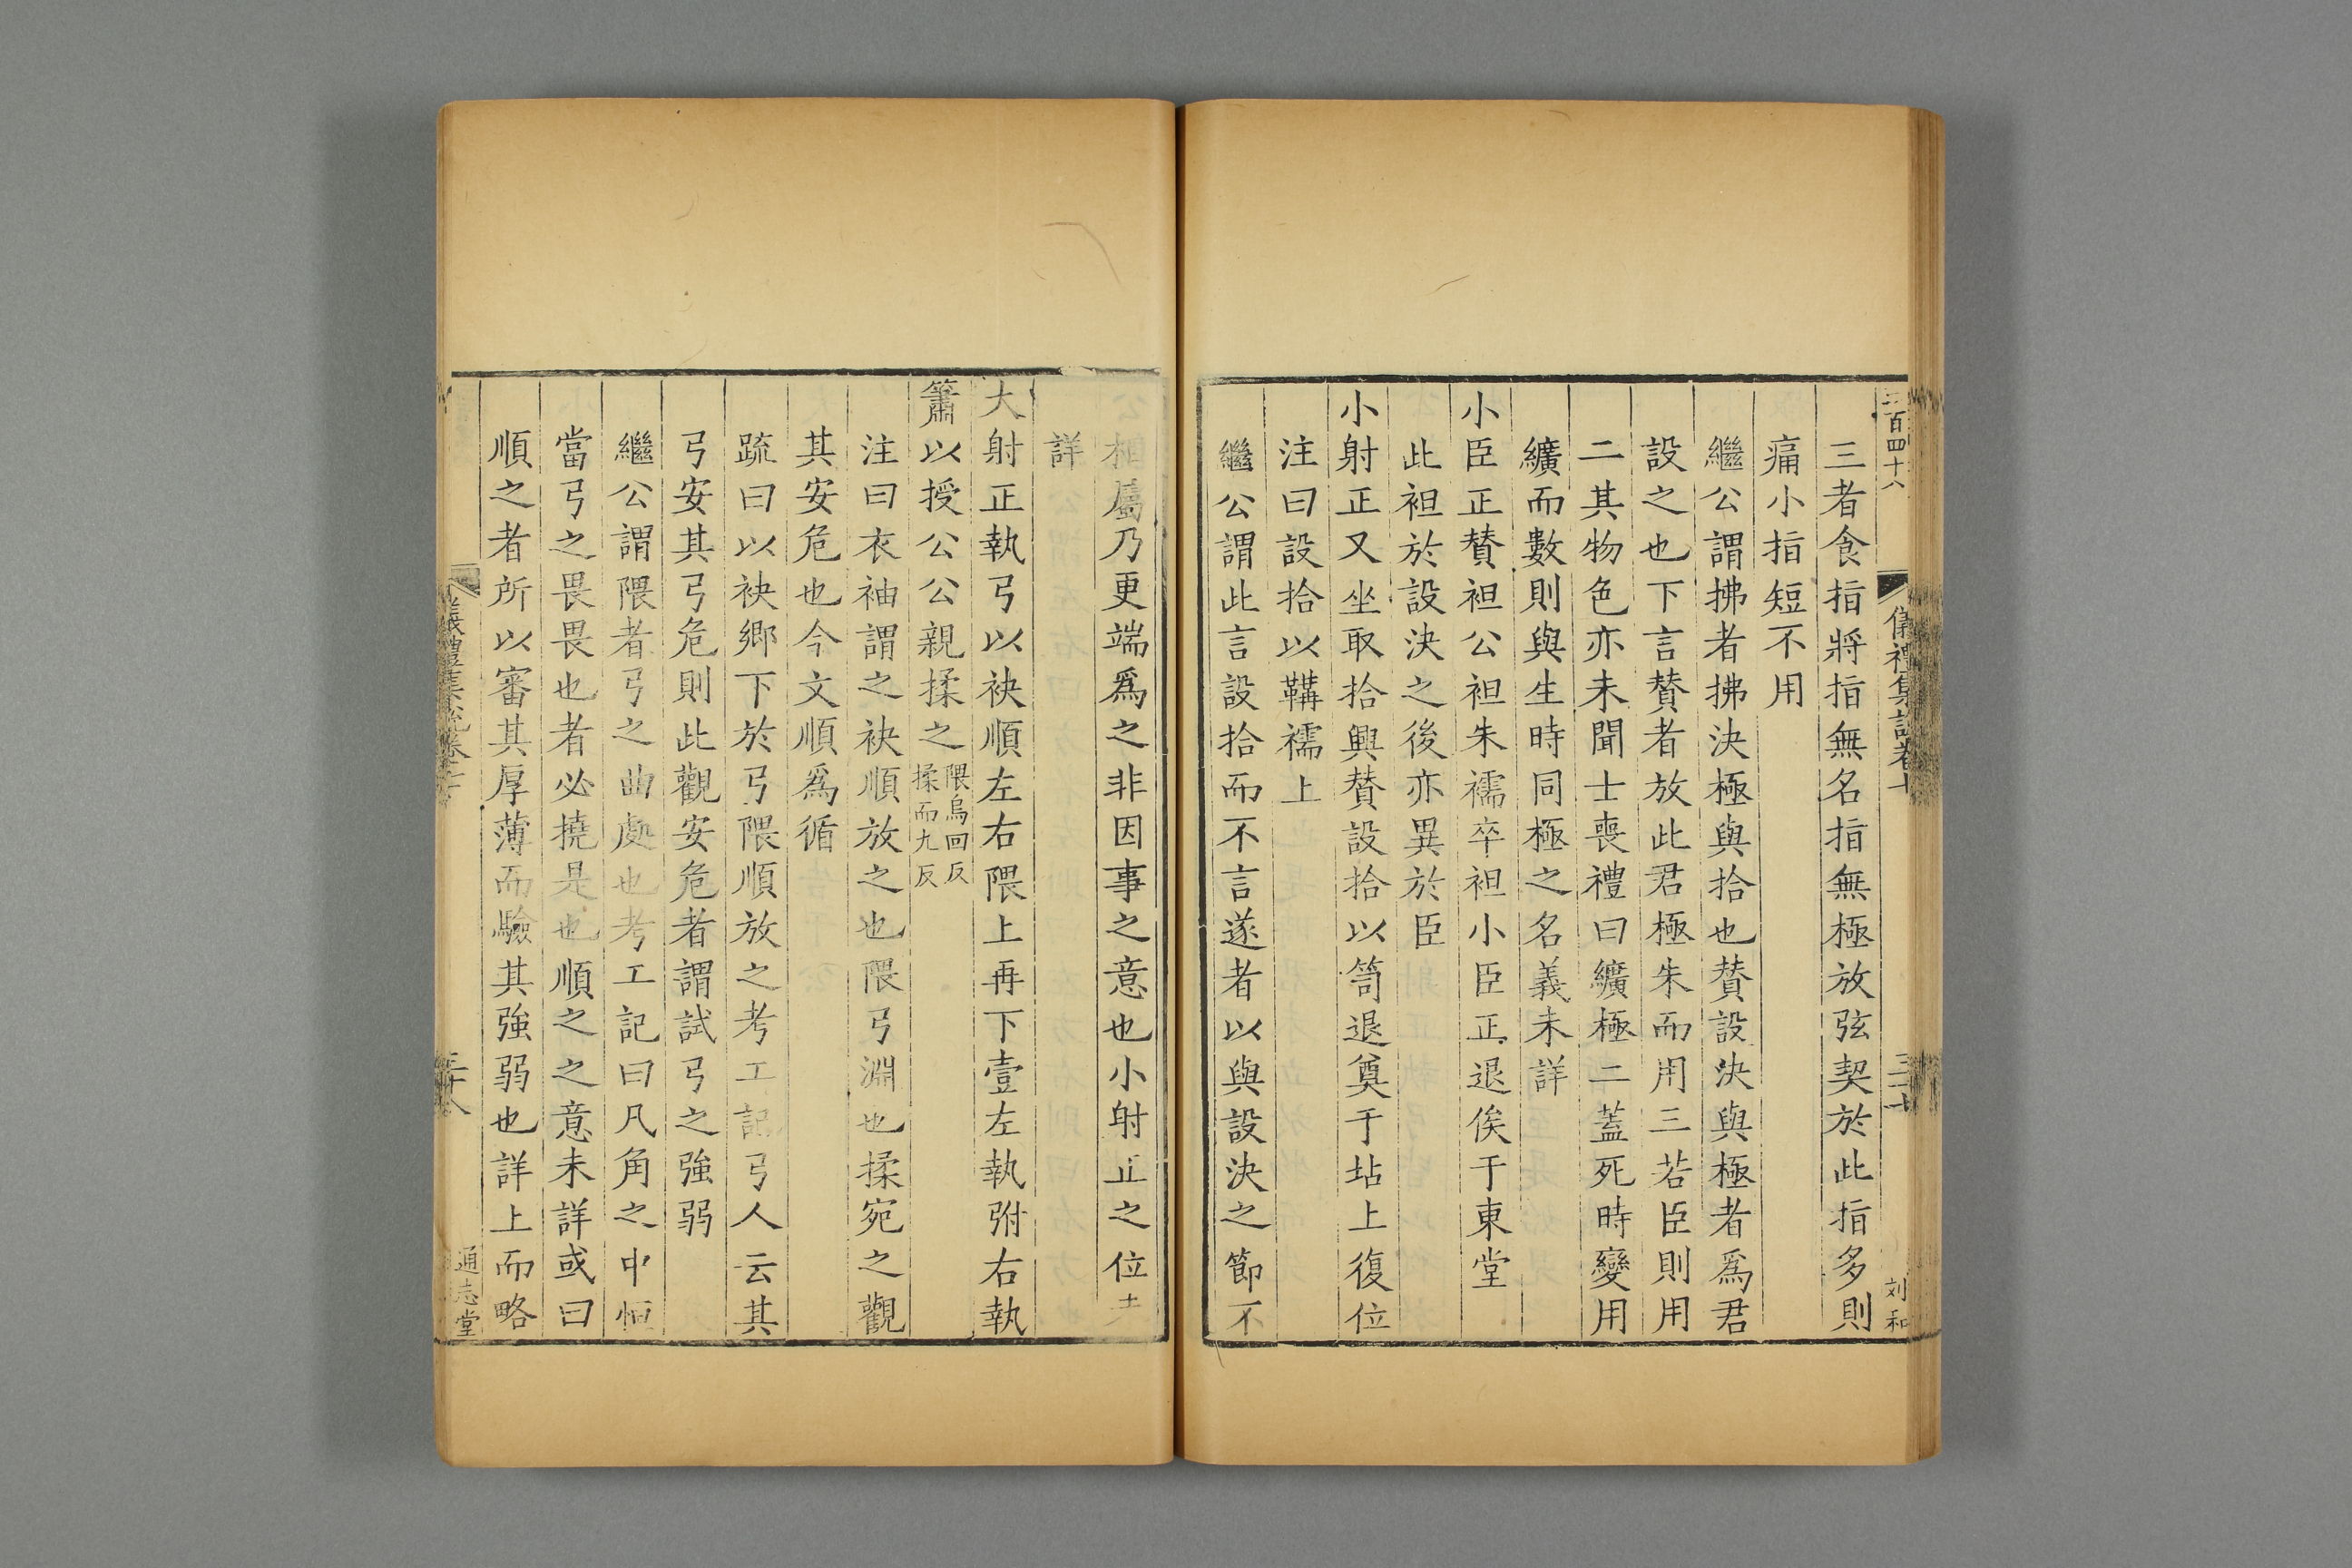 三百四十八
儀禮集說卷七
三十七
刘和
三者食指將指無名指無極放弦契於此指多則
痛小指短不用
繼公謂拂者拂決極與拾也賛設決與極者爲君
設之也下言賛者放此君極朱而用三若臣則用
二其物色亦未聞士喪禮曰纊極二蓋死時變用
纊而數則與生時同極之名義未詳
小臣正賛袒公袒朱襦卒袒小臣正退俟于東堂
此袒於設決之後亦異於臣
小射正又坐取拾興賛設拾以笥退奠于坫上復位
注曰設拾以韝襦上
繼公謂此言設拾而不言遂者以與設決之節不
相屬乃更端爲之非因事之意也小射正之位未
詳
大射正執弓以袂順左右隈上再下壹左執弣右執
簫以授公公親揉之隈烏回反揉而九反
注曰衣袖謂之袂順放之也隈弓淵也揉宛之觀
其安危也今文順爲循
疏曰以袂鄉下於弓隈順放之考工記弓人云其
弓安其弓危則此觀安危者謂試弓之強弱
繼公謂隈者弓之曲處也考工記曰凡角之中恒
當弓之畏畏也者必撓是也順之之意未詳或曰
順之者所以審其厚薄而驗其強弱也詳上而略
三十八
通志堂